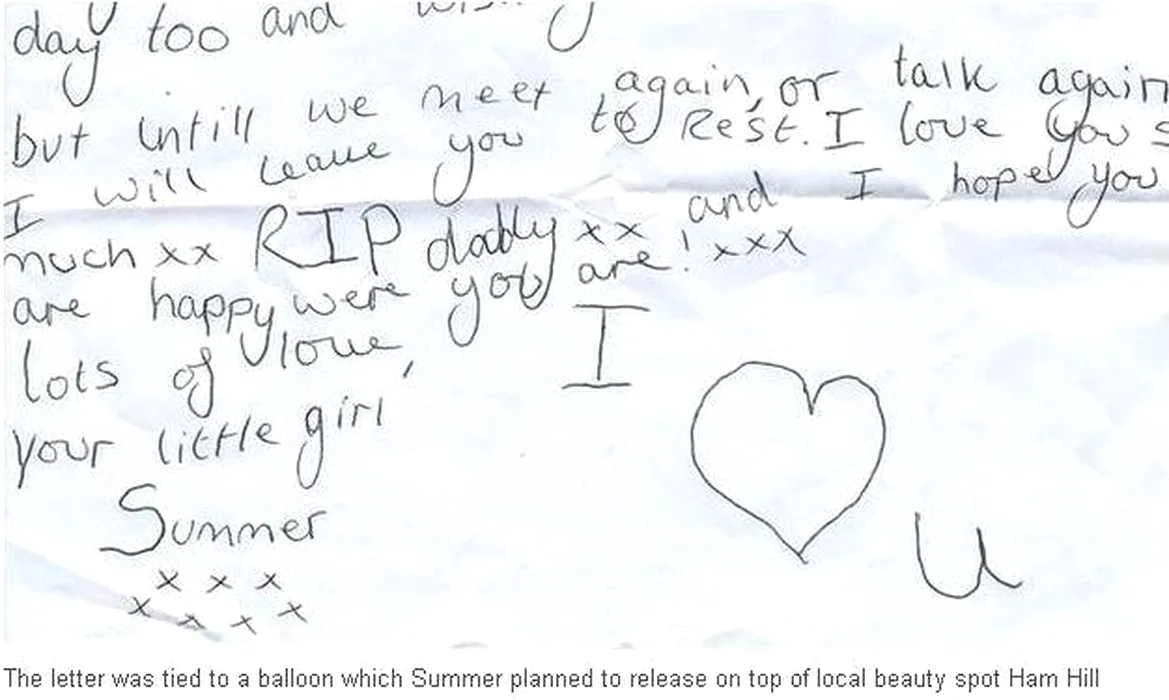 day too and
but untill we meet again, or talk again
I will leave you to Rest. I love you s
much xx RIP dably xx and I hope you
are happy were you are! xxx
lots of love,
your little girl
Summer
x x x
x x x x
I
U
The letter was tied to a balloon which Summer planned to release on top of local beauty spot Ham Hill